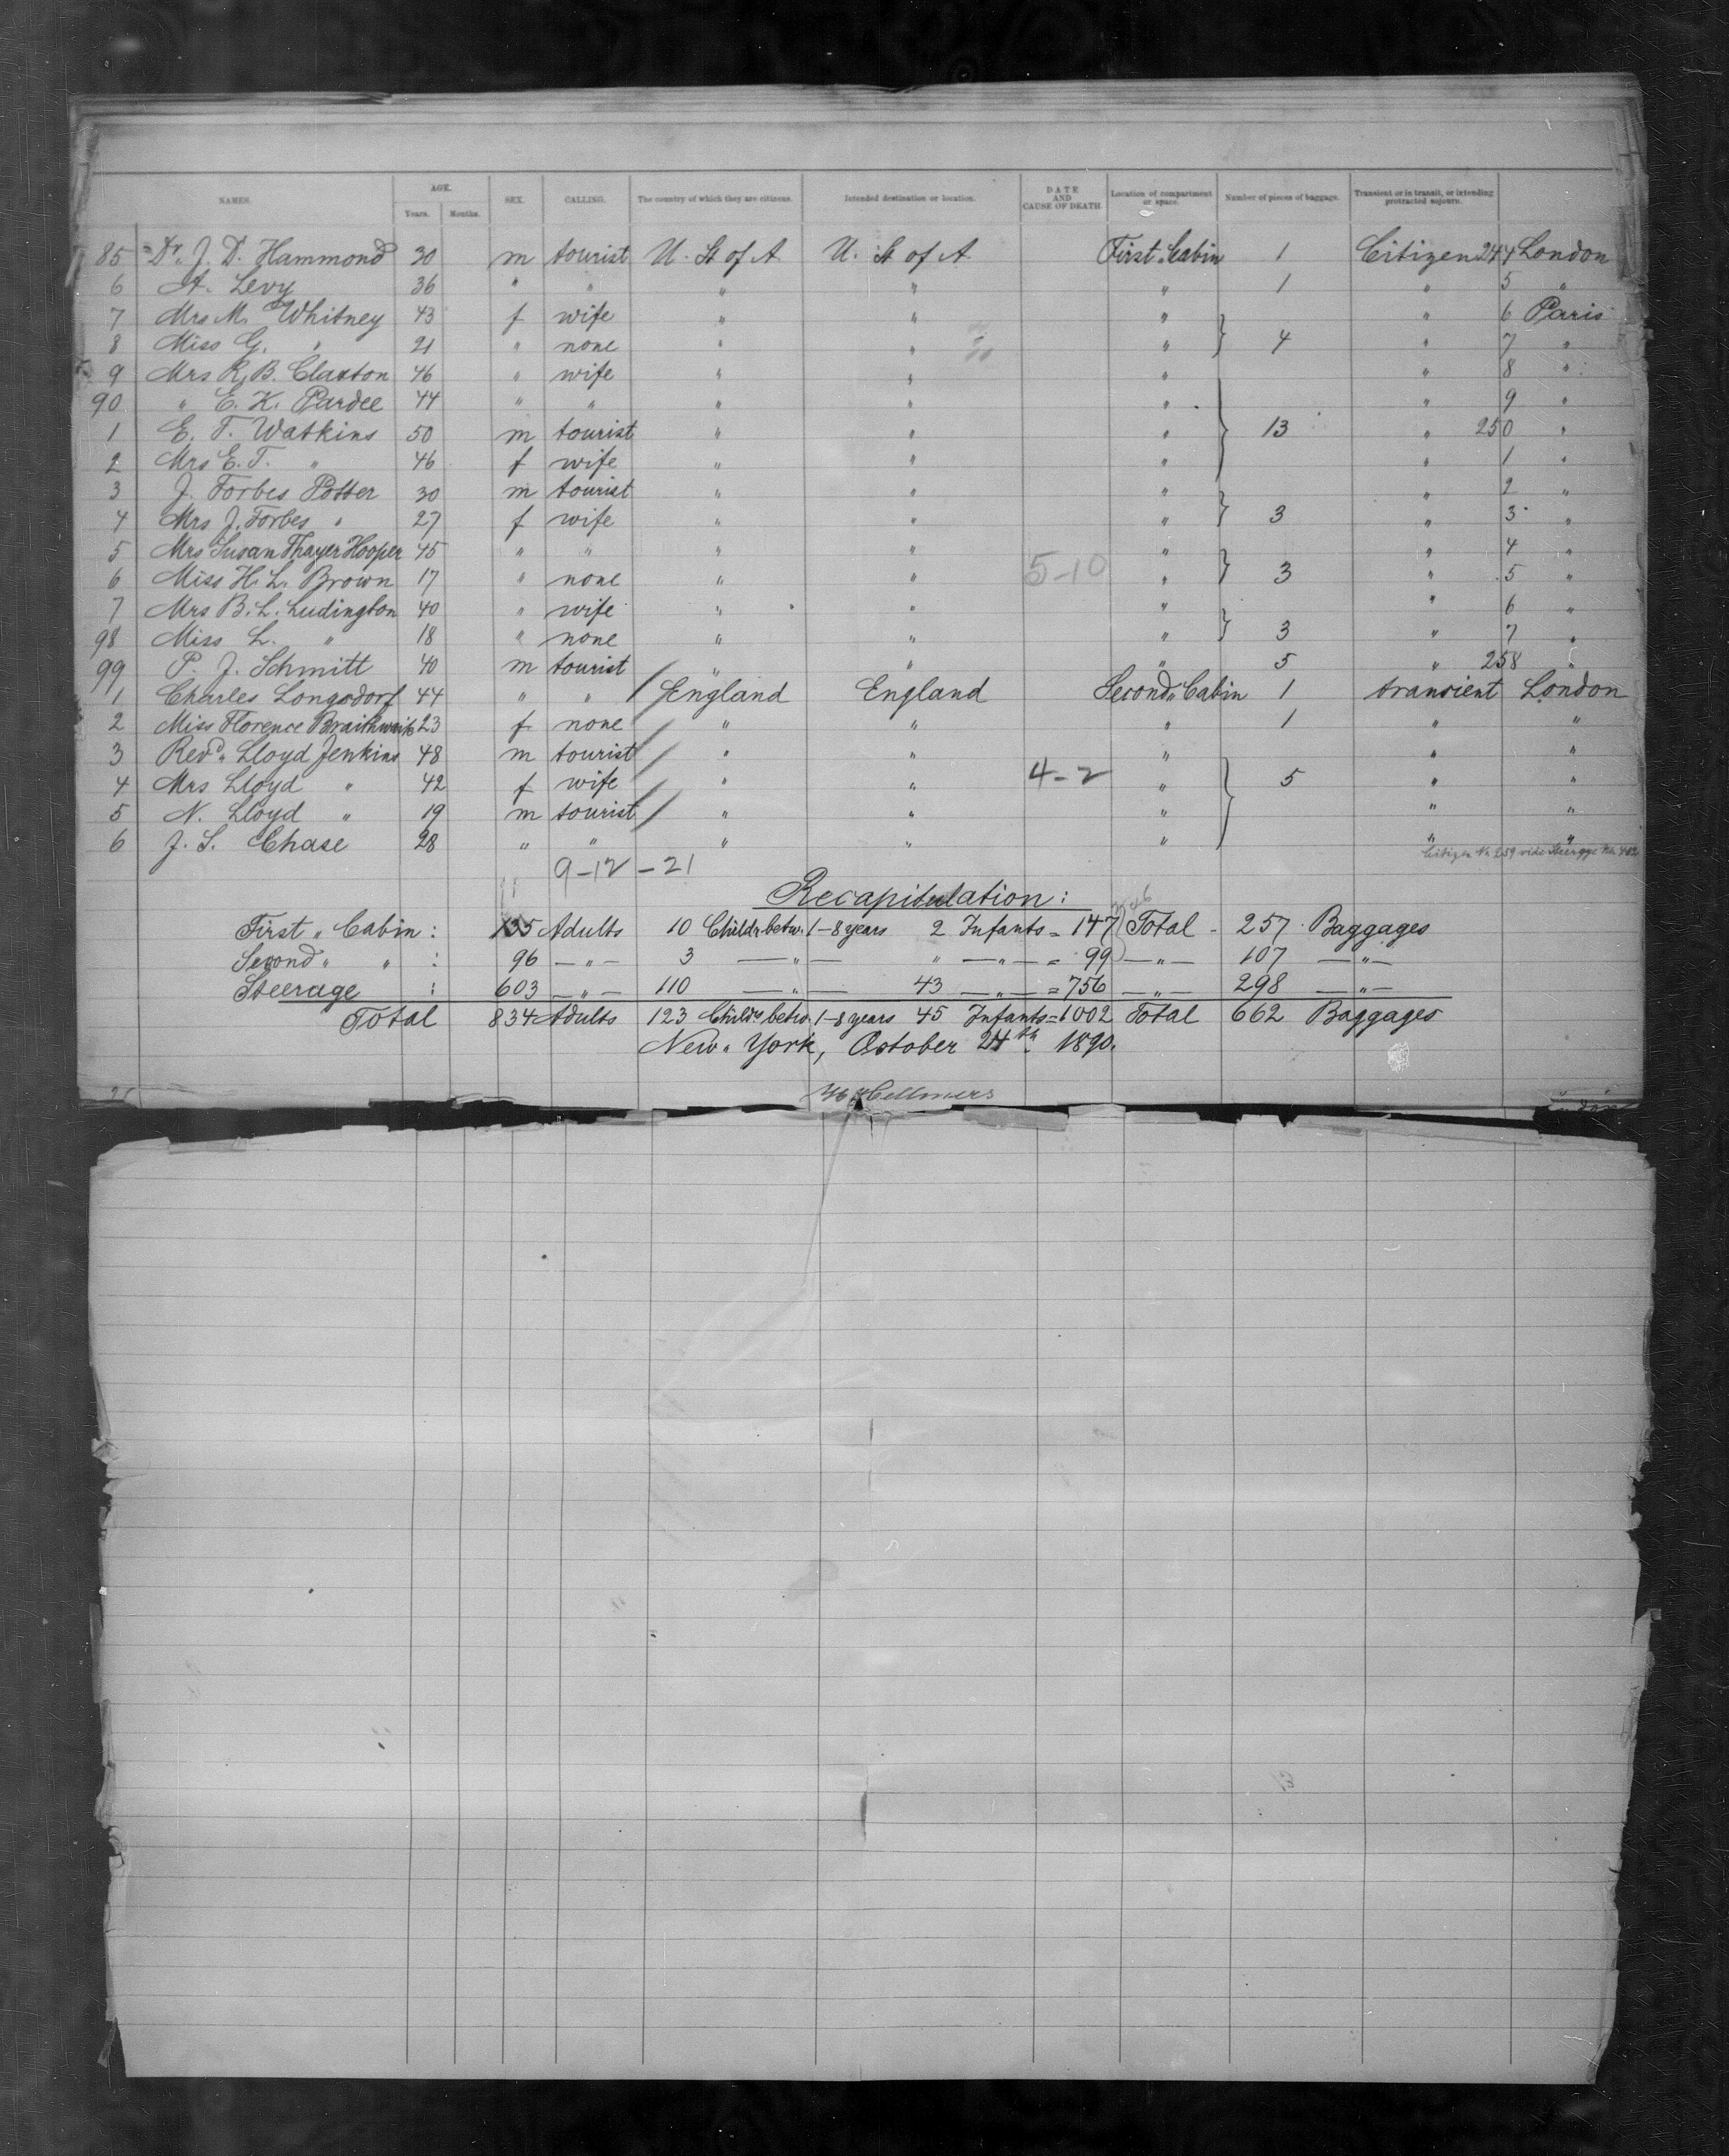 NAMES. AGE. Years. Months. SEX. CALLING. The country of which they are citizens. Intended destination or location. DATE AND CAUSE OF DEATH. Location of compartment or space. Number of pieces of baggage. Transient or in transit, or intending protracted sojourn.
85 Dr. J. D. Hammond 30 m tourist U. St of A U. St of A First " Cabin 1 Citizen 244 London
6 A. Levy 36 " " " " " 1 " 5 "
7 Mrs M. Whitney 43 f wife " " " " 6 Paris
8 Miss G. " 21 " none " " " 4 " 7 "
9 Mrs R. B. Claxton 46 " wife " " " " 8 "
90 " E. K. Pardee 44 " " " " " " 9 "
1 E. T. Watkins 50 m tourist " " " 13 " 250 "
2 Mrs E. T. " 46 f wife " " " " 1 "
3 J. Forbes Potter 30 m tourist " " " " 2 "
4 Mrs J. Forbes " 27 f wife " " " 3 " 3 "
5 Mrs Susan Thayer Hooper 45 " " " " " " 4 "
6 Miss H. L. Brown 17 " none " " 5-10 " 3 " 5 "
7 Mrs B. L. Ludington 40 " wife " " " " 6 "
98 Miss L. " 18 " none " " " 3 " 7 "
99 P. J. Schmitt 40 m tourist " " " 5 " 258 "
1 Charles Longsdorf 44 " " England England Second " Cabin 1 transient London
2 Miss Florence Braithwaite 23 f none " " " 1 " "
3 Revd. Lloyd Jenkins 48 m tourist " " " " "
4 Mrs Lloyd " 42 f wife " " 4-2 " 5 " "
5 N. Lloyd " 19 m tourist " " " " "
6 J. S. Chase 28 " " " " " " "
Citizen No 259 vide Steerage No 402
9-12-21
Recapitulation:
First " Cabin : 135 Adults 10 Childr. betw. 1-8 years 2 Infants = 147 Total - 257 Baggages
Second " " : 96 —"— 3 —"— " —"— = 99 —"— 107 —"—
Steerage : 603 —"— 110 —"— 43 —"— = 756 —"— 298 —"—
Total 834 Adults 123 Childrs betw. 1-8 years 45 Infants = 1002 Total 662 Baggages
New " York, October 24th. 1890.